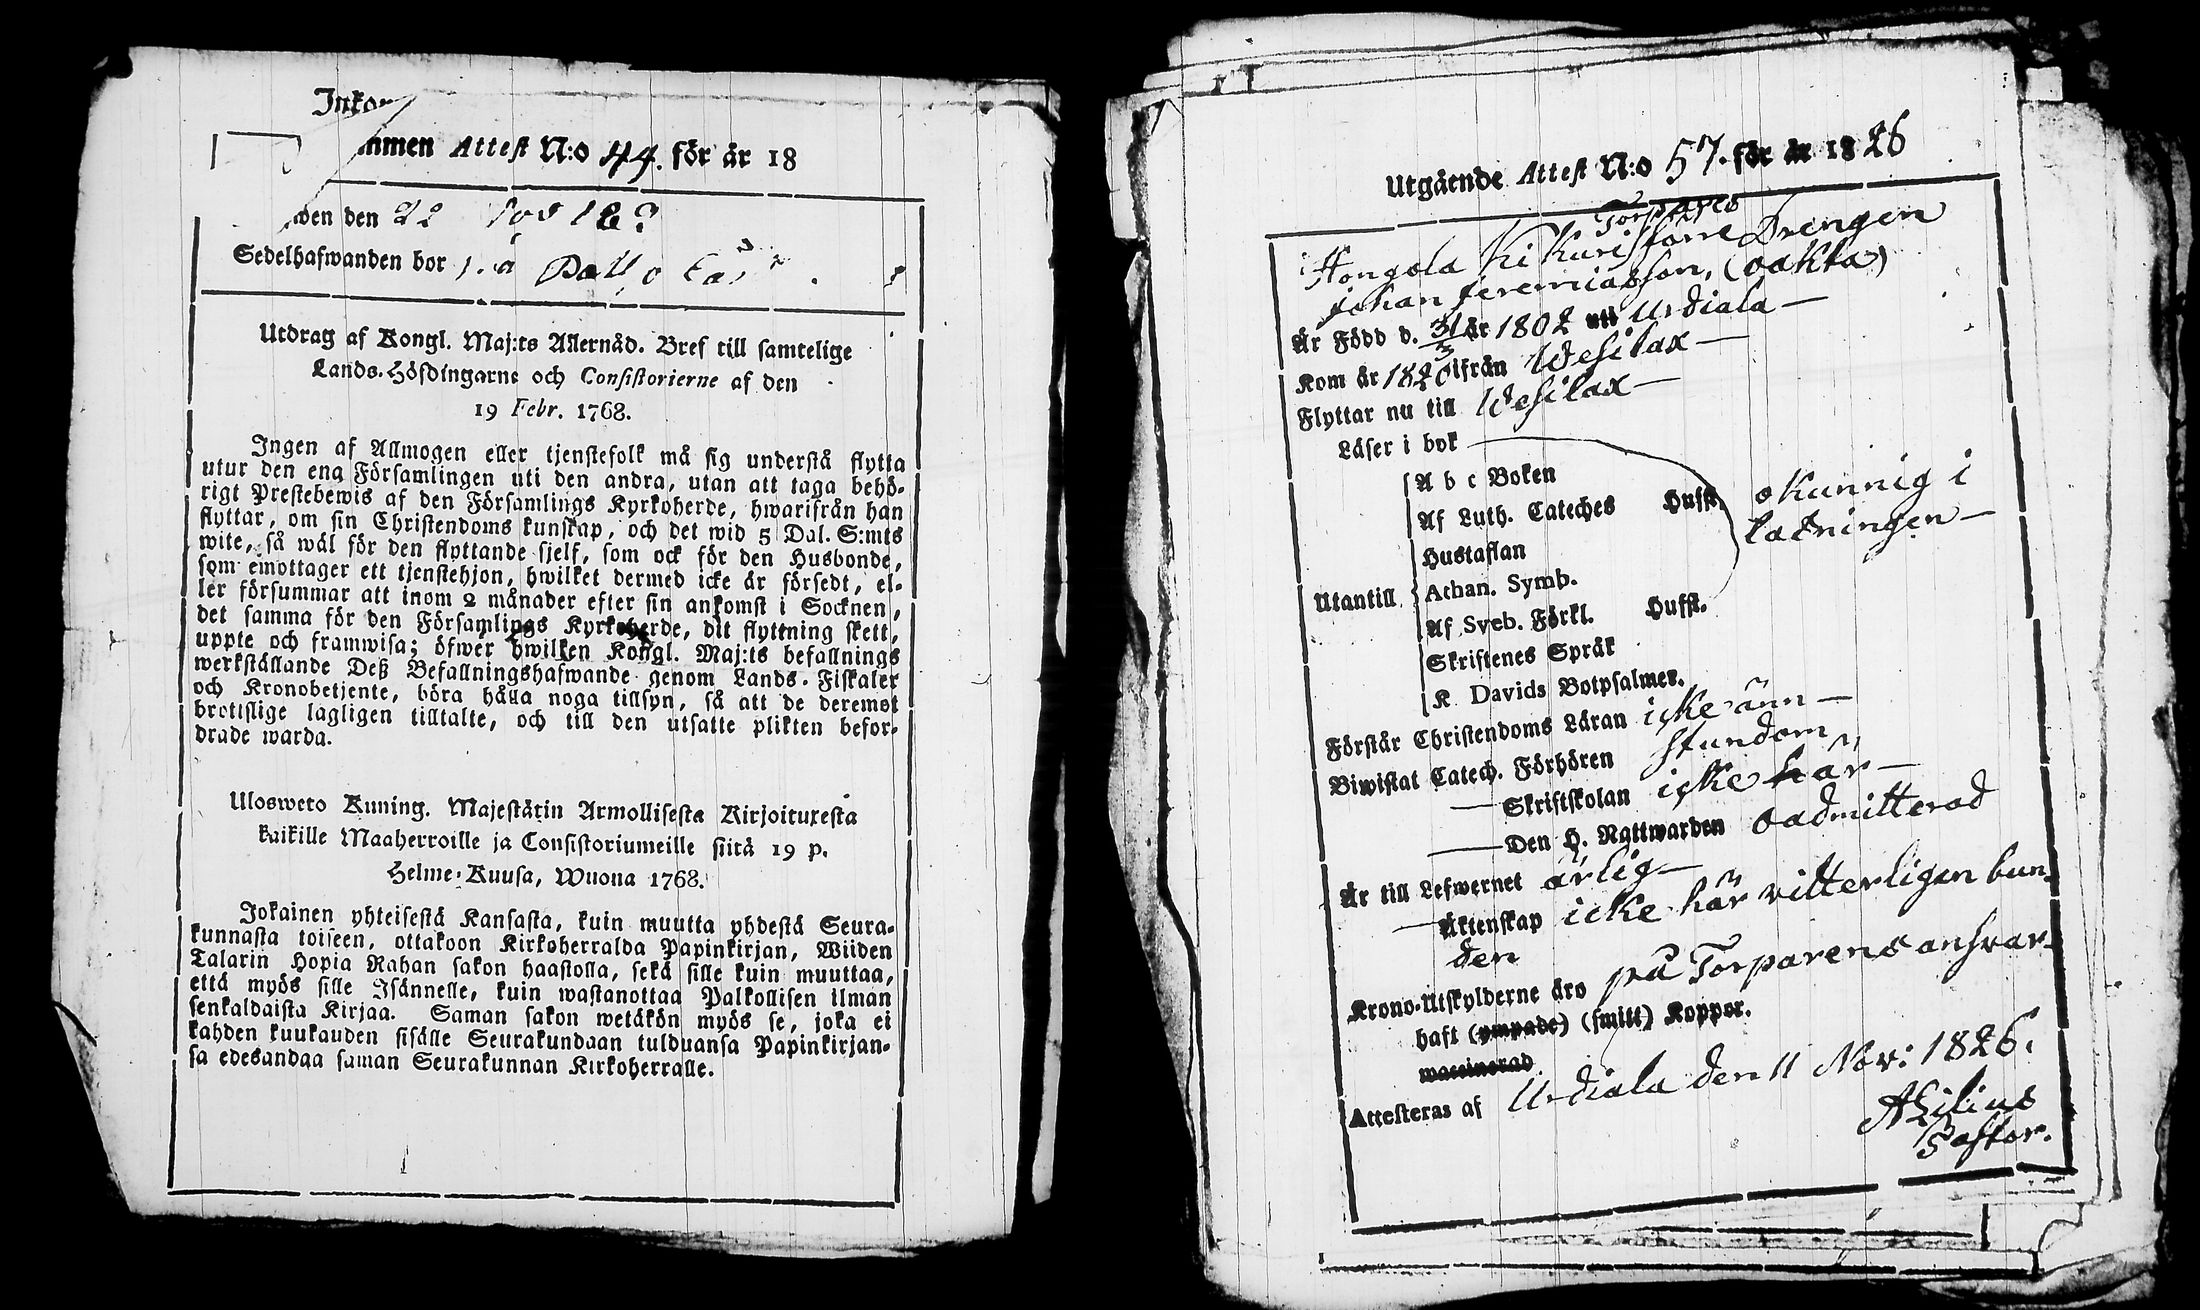 Inkom
mmen Attest N:o 44. för år 18
den 22 Nov 182
Sedelhafwanden bor
Utdrag af Kongl. Maj:ts Allernåd. Bref till samtelige
Lands-Höfdingarne och Consistorierne af den
19 Febr. 1768.
Ingen af Allmogen eller tjenstefolk må sig understå flytta
utur den ena Församlingen uti den andra, utan att taga behö-
rigt Prestebewis af den Församlings Kyrkoherde, hwarifrån han
flyttar, om sin Christendoms kunskap, och det wid 5 Dal. S:mts
wite, så wäl för den flyttande sjelf, som ock för den Husbonde,
som emottager ett tjenstehjon, hwilket dermed icke är försedt, el-
ler försummar att inom 2 månader efter sin ankomst i Socknen,
det samma för den Församlings Kyrkoherde, dit flyttning skett,
uppte och framwisa; öfwer hwilken Kongl. Maj:ts befallnings
werkställande Deß Befallningshafwande genom Lands-Fiskaler
och Kronobetjente, böra hålla noga tillsyn, så att de deremot
brottslige lagligen tilltalte, och till den utsatte plikten befor-
drade warda.
Ulosweto Kuning. Majestätin Armollisesta Kirjoituxesta
kaikille Maaherroille ja Consistoriumeille siitä 19 p.
Helme-Kuusa, Wuona 1768.
Jokainen yhteisestä Kansasta, kuin muutta yhdestä Seura-
kunnasta toiseen, ottakoon Kirkoherralda Papinkirjan, Wiiden
Talarin Hopia Rahan sakon haastolla, sekä sille kuin muuttaa,
että myös sille Isännelle, kuin wastanottaa Palkollisen ilman
senkaldaista Kirjaa. Saman sakon wetäkön myös se, joka ei
kahden kuukauden sisälle Seurakundaan tulduansa Papinkirjan-
sa edesandaa saman Seurakunnan Kirkoherralle.
Utgående Attest N:o 57. för år 1826
Torpares
Hongola Kikuri förre Drengen
Johan Jeremiasson, (oäkta)
Är Född d. 31/3 år 1802 uti Urdiala —
Kom år 1820 ifrån Wesilax —
Flyttar nu till Wesilax —
Läser i bok
A b c Boken
Af Luth. Cateches Hufst. okunnig i
Hustaflan läsningen —
Utantill Athan. Symb.
Af Sveb. Förkl. Hufst.
Skriftenes Språk
K. Davids Botpsalmer.
Förstår Christendoms Läran icke änn —
Biwistat Catech. Förhören stundom
— Skriftskolan icke här —
— Den H. Nattwarden oadmitterad
Är till Lefwernet ärlig —
— Äktenskap icke här vitterligen bun-
den
Krono-Utskylderne äro på Torparens ansvar —
haft (ympade) (smitt) Koppor.
waccinerad
Attesteras af Urdiala den 11 Nov: 1826.
A Lilius
Pastor.